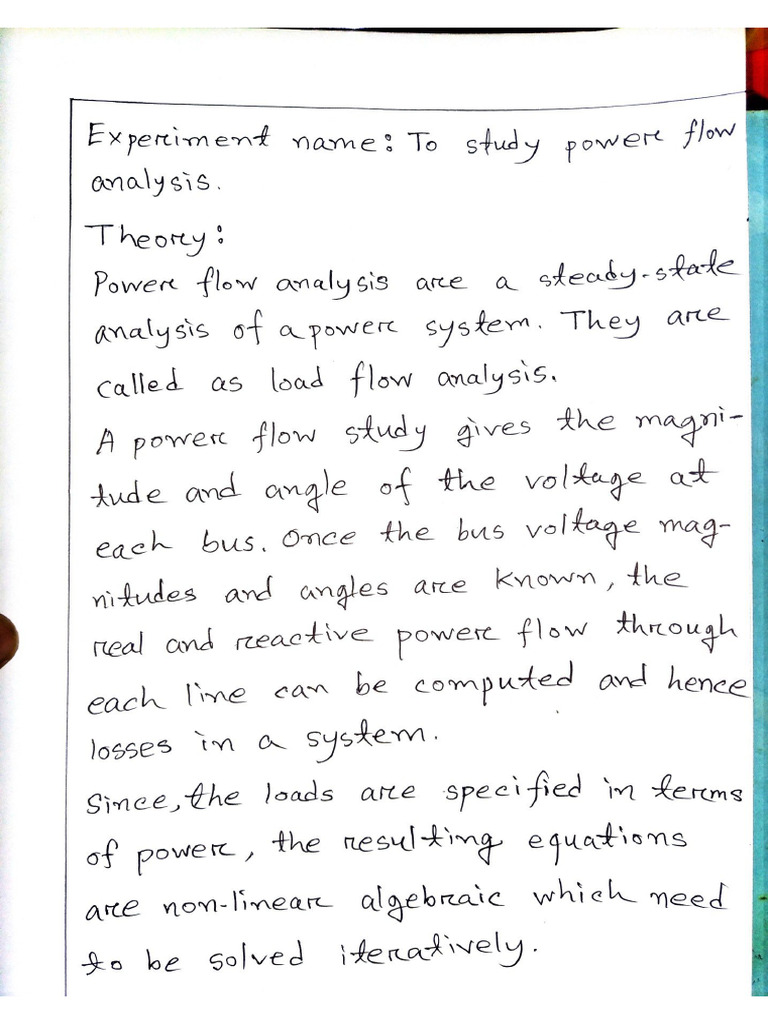 Experiment name: To study power flow
analysis.
Theory:
Power flow analysis are a steady-state
analysis of a power system. They are
called as load flow analysis.
A power flow study gives the magni-
tude and angle of the voltage at
each bus. Once the bus voltage mag-
nitudes and angles are known, the
real and reactive power flow through
each line can be computed and hence
losses in a system.
Since, the loads are specified in terms
of power, the resulting equations
are non-linear algebraic which need
to be solved iteratively.